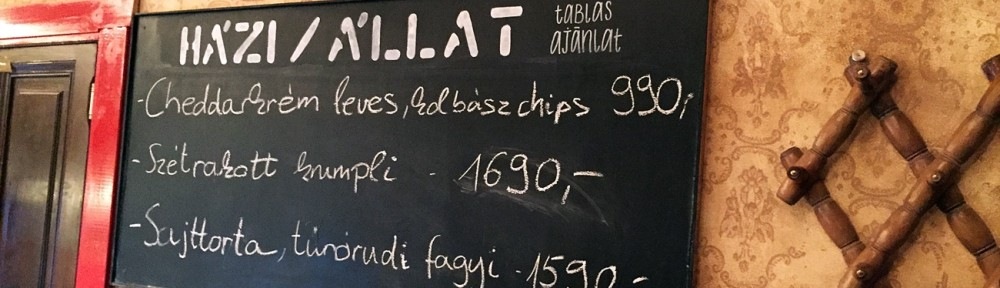 HÁZI/ÁLLAT
táblás
ajánlat
-Cheddarkrém leves, kolbász chips 990,-
-Szétrakott krumpli - 1690,-
-Sajttorta, túrórudi fagyi - 1590,-